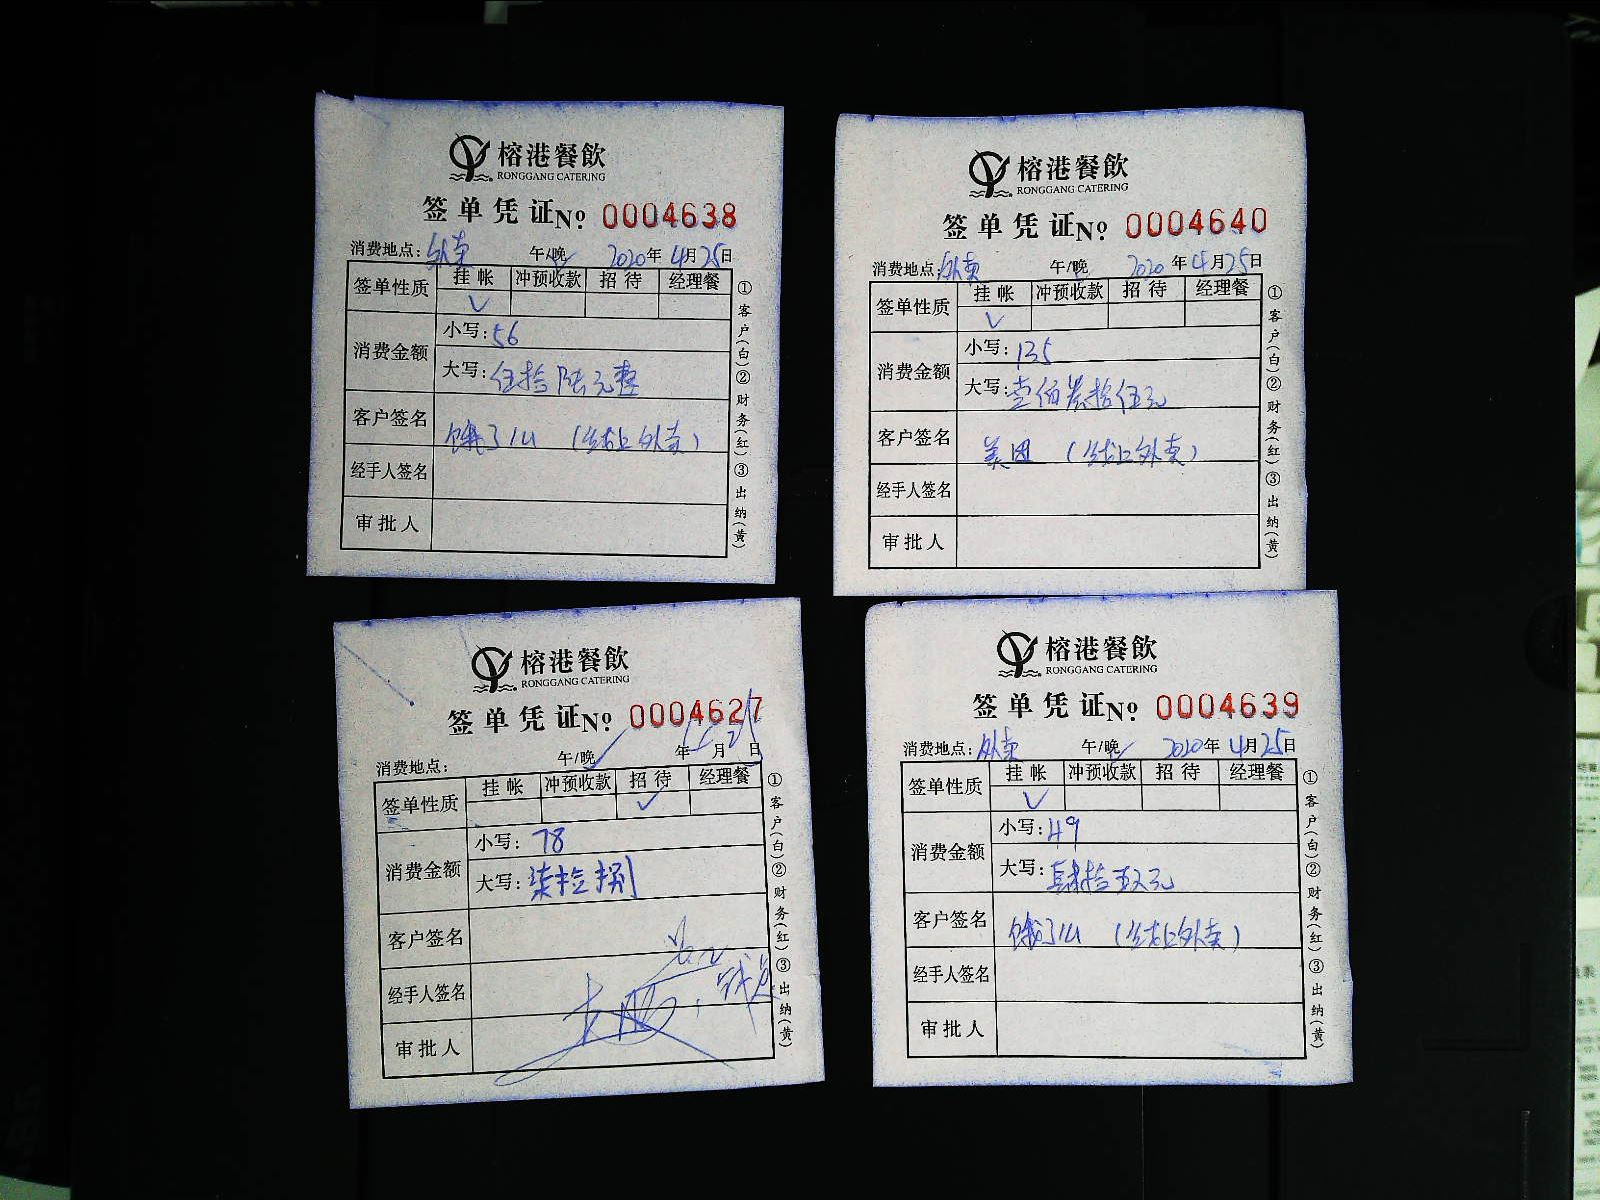 榕港餐飲
RONGGANG CATERING
签单凭证 No 0004638
消费地点: 外卖 午/晚 2020年4月25日
签单性质 挂帐 冲预收款 招待 经理餐
√
消费金额 小写: 56
大写: 伍拾陆元整
客户签名 饿了么 (线上外卖)
经手人签名
审批人
①客户(白)②财务(红)③出纳(黄)
榕港餐飲
RONGGANG CATERING
签单凭证 No 0004640
消费地点: 外卖 午/晚 2020年4月25日
签单性质 挂帐 冲预收款 招待 经理餐
√
消费金额 小写: 135
大写: 壹佰叁拾伍元
客户签名 美团 (线上外卖)
经手人签名
审批人
①客户(白)②财务(红)③出纳(黄)
榕港餐飲
RONGGANG CATERING
签单凭证 No 0004627
消费地点: 午/晚 年 月 日
签单性质 挂帐 冲预收款 招待 经理餐
√
消费金额 小写: 78
大写: 柒拾捌
客户签名
经手人签名
审批人
①客户(白)②财务(红)③出纳(黄)
榕港餐飲
RONGGANG CATERING
签单凭证 No 0004639
消费地点: 外卖 午/晚 2020年4月25日
签单性质 挂帐 冲预收款 招待 经理餐
√
消费金额 小写: 49
大写: 肆拾玖元
客户签名 饿了么 (线上外卖)
经手人签名
审批人
①客户(白)②财务(红)③出纳(黄)